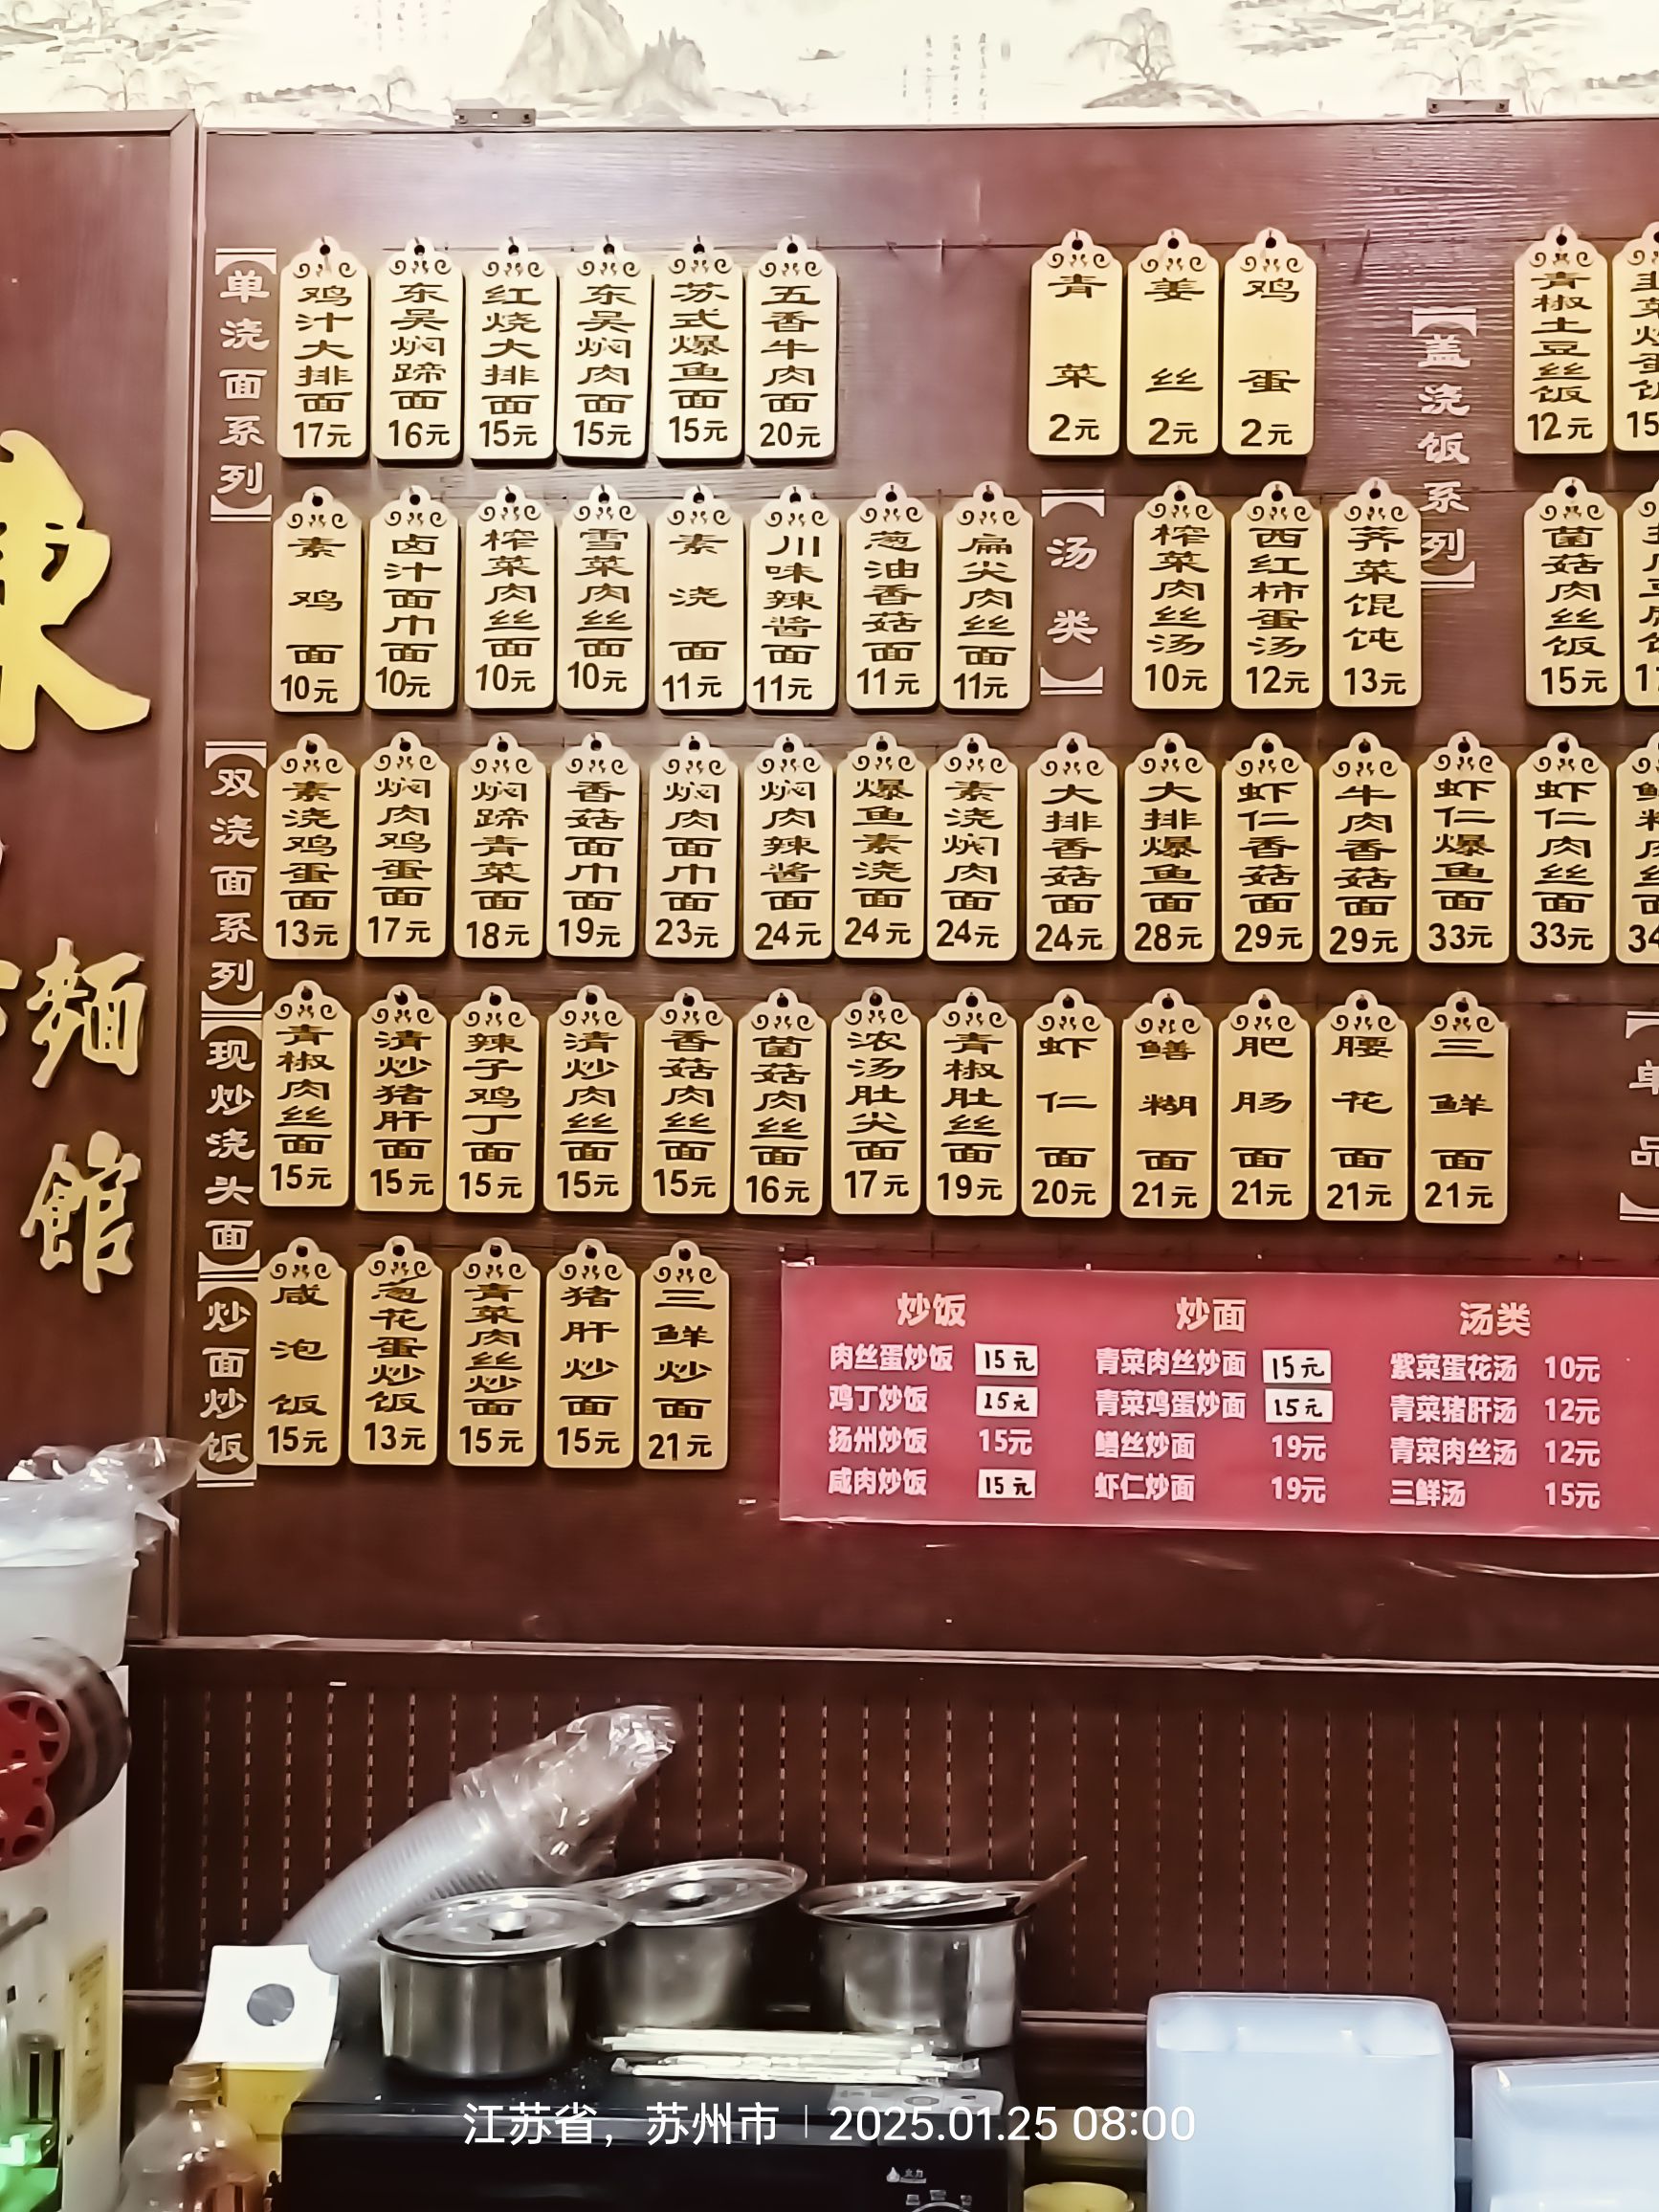 麵
館
【单浇面系列】
鸡汁大排面 17元
东吴焖蹄面 16元
红烧大排面 15元
东吴焖肉面 15元
苏式爆鱼面 15元
五香牛肉面 20元
青菜 2元
姜丝 2元
鸡蛋 2元
素鸡面 10元
卤汁面巾面 10元
榨菜肉丝面 10元
雪菜肉丝面 10元
素浇面 11元
川味辣酱面 11元
葱油香菇面 11元
扁尖肉丝面 11元
【汤类】
榨菜肉丝汤 10元
西红柿蛋汤 12元
荠菜馄饨 13元
【盖浇饭系列】
青椒土豆丝饭 12元
菌菇肉丝饭 15元
【双浇面系列】
素浇鸡蛋面 13元
焖肉鸡蛋面 17元
焖蹄青菜面 18元
香菇面巾面 19元
焖肉面巾面 23元
焖肉辣酱面 24元
爆鱼素浇面 24元
素浇焖肉面 24元
大排香菇面 24元
大排爆鱼面 28元
虾仁香菇面 29元
牛肉香菇面 29元
虾仁爆鱼面 33元
虾仁肉丝面 33元
【现炒浇头面】
青椒肉丝面 15元
清炒猪肝面 15元
辣子鸡丁面 15元
清炒肉丝面 15元
香菇肉丝面 15元
菌菇肉丝面 16元
浓汤肚尖面 17元
青椒肚丝面 19元
虾仁面 20元
鳝糊面 21元
肥肠面 21元
腰花面 21元
三鲜面 21元
【单品】
【炒面炒饭】
咸泡饭 15元
葱花蛋炒饭 13元
青菜肉丝炒面 15元
猪肝炒面 15元
三鲜炒面 21元
炒饭
肉丝蛋炒饭 15元
鸡丁炒饭 15元
扬州炒饭 15元
咸肉炒饭 15元
炒面
青菜肉丝炒面 15元
青菜鸡蛋炒面 15元
鳝丝炒面 19元
虾仁炒面 19元
汤类
紫菜蛋花汤 10元
青菜猪肝汤 12元
青菜肉丝汤 12元
三鲜汤 15元
江苏省，苏州市 | 2025.01.25 08:00